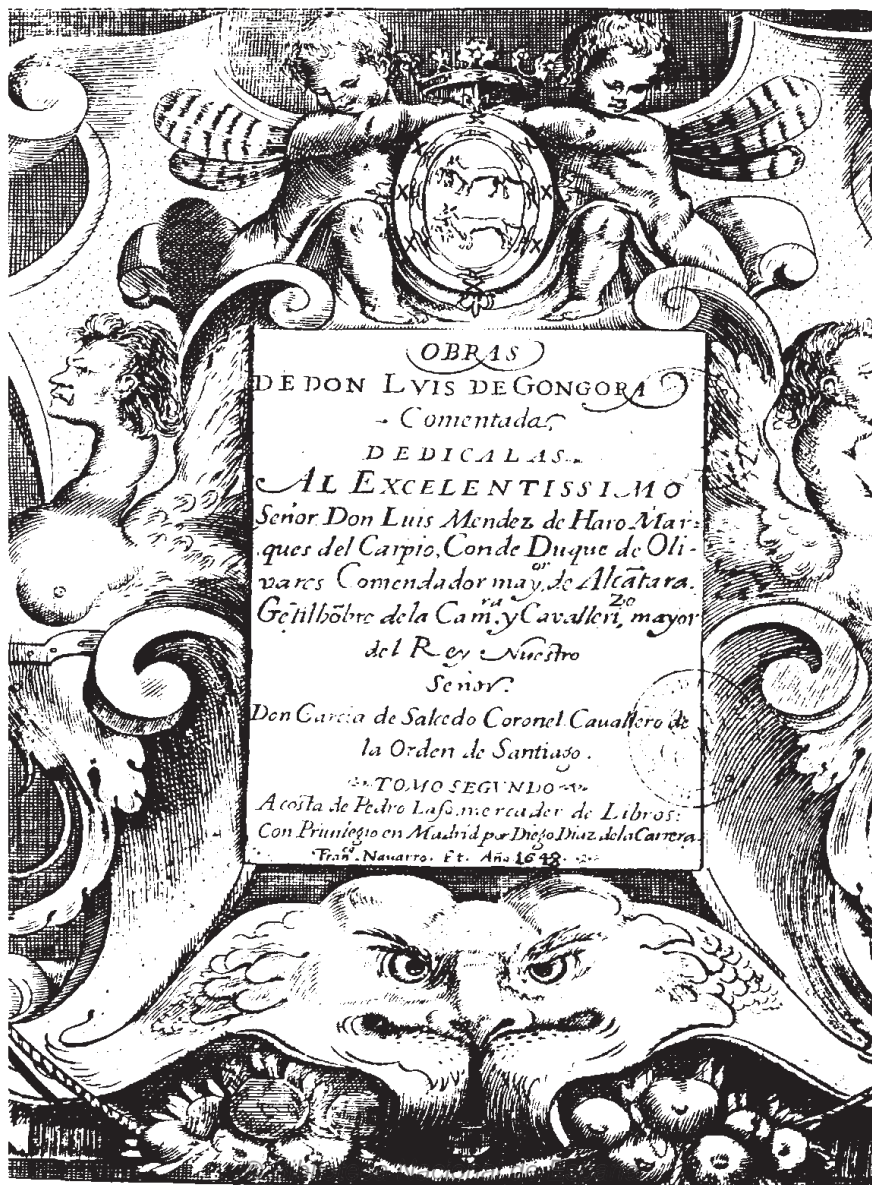 OBRAS
DE DON LVIS DE GONGORA
Comentadas
DEDICALAS
AL EXCELENTISSIMO
Señor Don Luis Mendez de Haro Mar=
ques del Carpio, Conde Duque de Oli-
vares Comendador may.or de Alcātara.
Gētilhōbre dela Cam.ra y Cavalleri.zo mayor
del Rey Nuestro
Señor.
Don Garcia de Salcedo Coronel Cavallero de
la Orden de Santiago.
TOMO SEGVNDO
A costa de Pedro Laso mercader de Libros:
Con Priuilegio en Madrid por Diego Diaz dela Carrera
Fran.co Navarro. Ft. Año 1648.